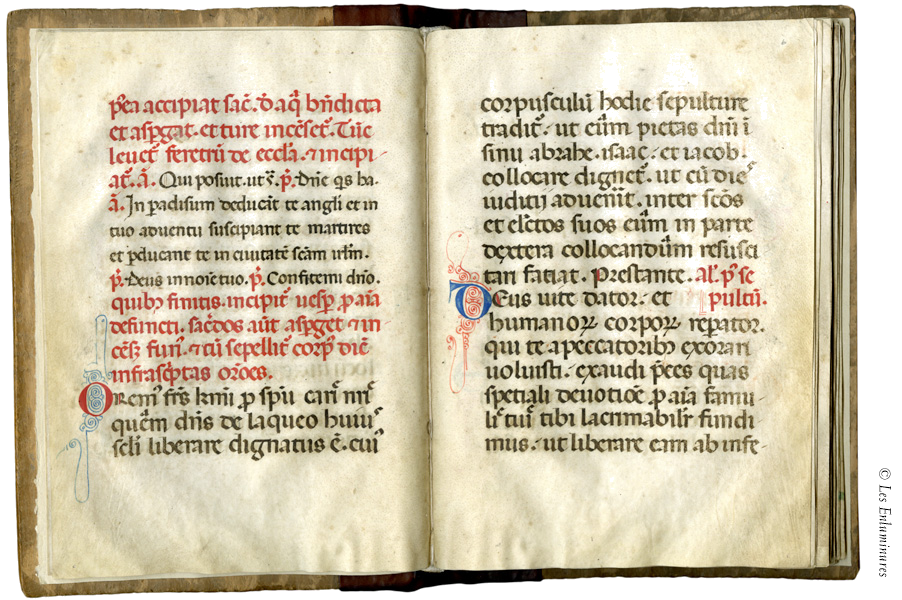 p̄ea accipiat sac̄. d̄ aq̄ bn̄dicta
et asp̄gat. et ture incēset. Tūc
leuet᷑ feretrū de eccl̄a. ⁊ incipi-
at᷑. ā. Qui posuit. ut s̄. p̄. Dn̄e q̄s ha-
ā. In paradisum deducāt te angli et in
tuo aduentu suscipiant te martires
et p̄ducant te in ciuitatē sc̄am irl̄m.
p̄. Deus in noīe tuo. p̄. Confitemi dn̄o.
quibꝫ finitis. incipit᷑ uesp̄. p̄ aīa
defuncti. sac̄dos aūt asp̄get ⁊ in-
cēs̄ fun᷑. ⁊ tū sepellit᷑ corpꝰ dic̄
infrasc̄ptas or̄oes.
Oremꝰ fr̄s kmī p̄ sp̄u cari nr̄i
quem dn̄s de laqueo huiuꝰ
sc̄li liberare dignatus ē. cuiꝰ
corpusculū hodie sepulture
tradit᷑. ut eum pietas dn̄i ī
sinu abrahe. isaac. et iacob.
collocare dignet᷑. ut cū dieꝰ
iuditii aduen̄it. inter sc̄os
et electos suos eum in parte
dextera collocandum resusci
tari faciat. Prestante. al᷑. p̄ se
Deus uite dator. et pultū.
humanoꝝ corpoꝝ rep̄ator.
qui te a peccatoribꝫ exorari
uoluisti. exaudi p̄ces quas
speciali deuotiōe p̄ aīa famu-
li᷑ tuī᷑ tibi lacrimabilr̄ fundi
mus. ut liberare eam ab infe-
© Les Enluminures